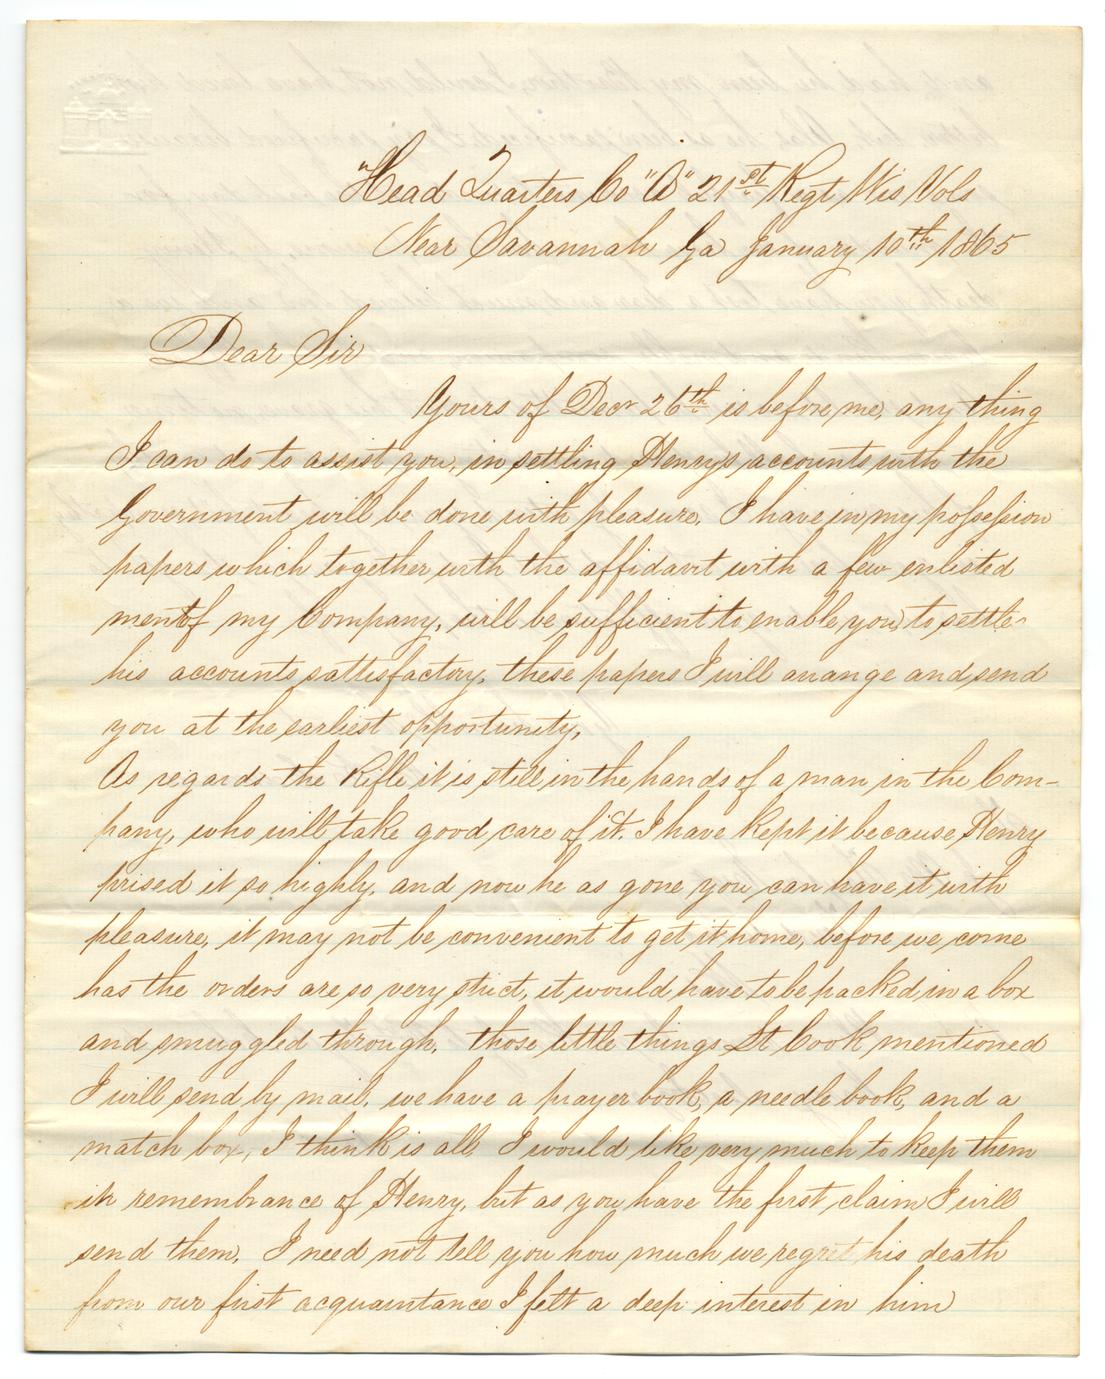 "Head Quarters Co "A" 21st Regt Wis Vols
Near Savannah Ga January 10th 1865
Dear Sir
Yours of Decr 26th is before me, any thing
I can do to assist you, in settling Henrys accounts with the
Government will be done with pleasure. I have in my possession
papers which together with the affidavit with a few enlisted
men of my Company, will be sufficient to enable you to settle
his accounts sattisfactory, these papers I will arrange and send
you at the earliest opportunity,
As regards the Rifle it is still in the hands of a man in the Com-
pany, who will take good care of it. I have kept it because Henry
prised it so highly, and now he as gone you can have it with
pleasure, it may not be convenient to get it home, before we come
has the orders are so very strict, it would have to be packed in a box
and smuggled through, those little things Lt Cook mentioned
I will send by mail, we have a prayer book, a needle book, and a
match box, I think is all I would like very much to keep them
in remembrance of Henry, but as you have the first claim I will
send them, I need not tell you how much we regret his death
from our first acquaintance I felt a deep interest in him